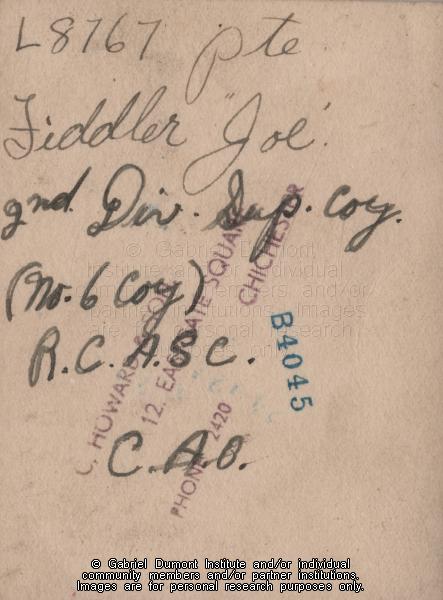 L8767 pte
Fiddler "Joe".
2nd. Div. Sup. Coy.
(No. 6 Coy)
R.C.A.S.C.
C.A.O.
C. HOWARD & SON
12. EASTGATE SQUARE
CHICHESTER
PHONE 2420
B4045
© Gabriel Dumont
Institute and/or individual
community members and/or
partner institutions. Images
are for personal research
purposes only.
© Gabriel Dumont Institute and/or individual
community members and/or partner institutions.
Images are for personal research purposes only.